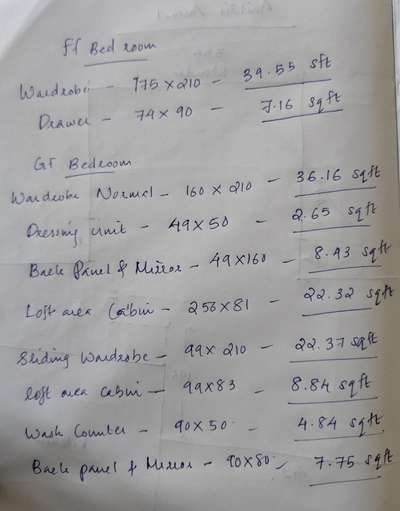 FF Bed room
Wardrobe - 175 x 210 - 39.55 sft
Drawer - 74 x 90 - 7.16 sqft
GF Bedroom
Wardrobe Normal - 160 x 210 - 36.16 sqft
Dressing Unit - 49 x 50 - 2.65 sqft
Back Panel & Mirror - 49 x 160 - 8.43 sqft
Loft area Cabin - 256 x 81 - 22.32 sqft
Sliding Wardrobe - 99 x 210 - 22.37 sqft
loft area cabin - 99 x 83 - 8.84 sqft
Wash Counter - 90 x 50 - 4.84 sqft
Back panel & Mirror - 90 x 80 - 7.75 sqft